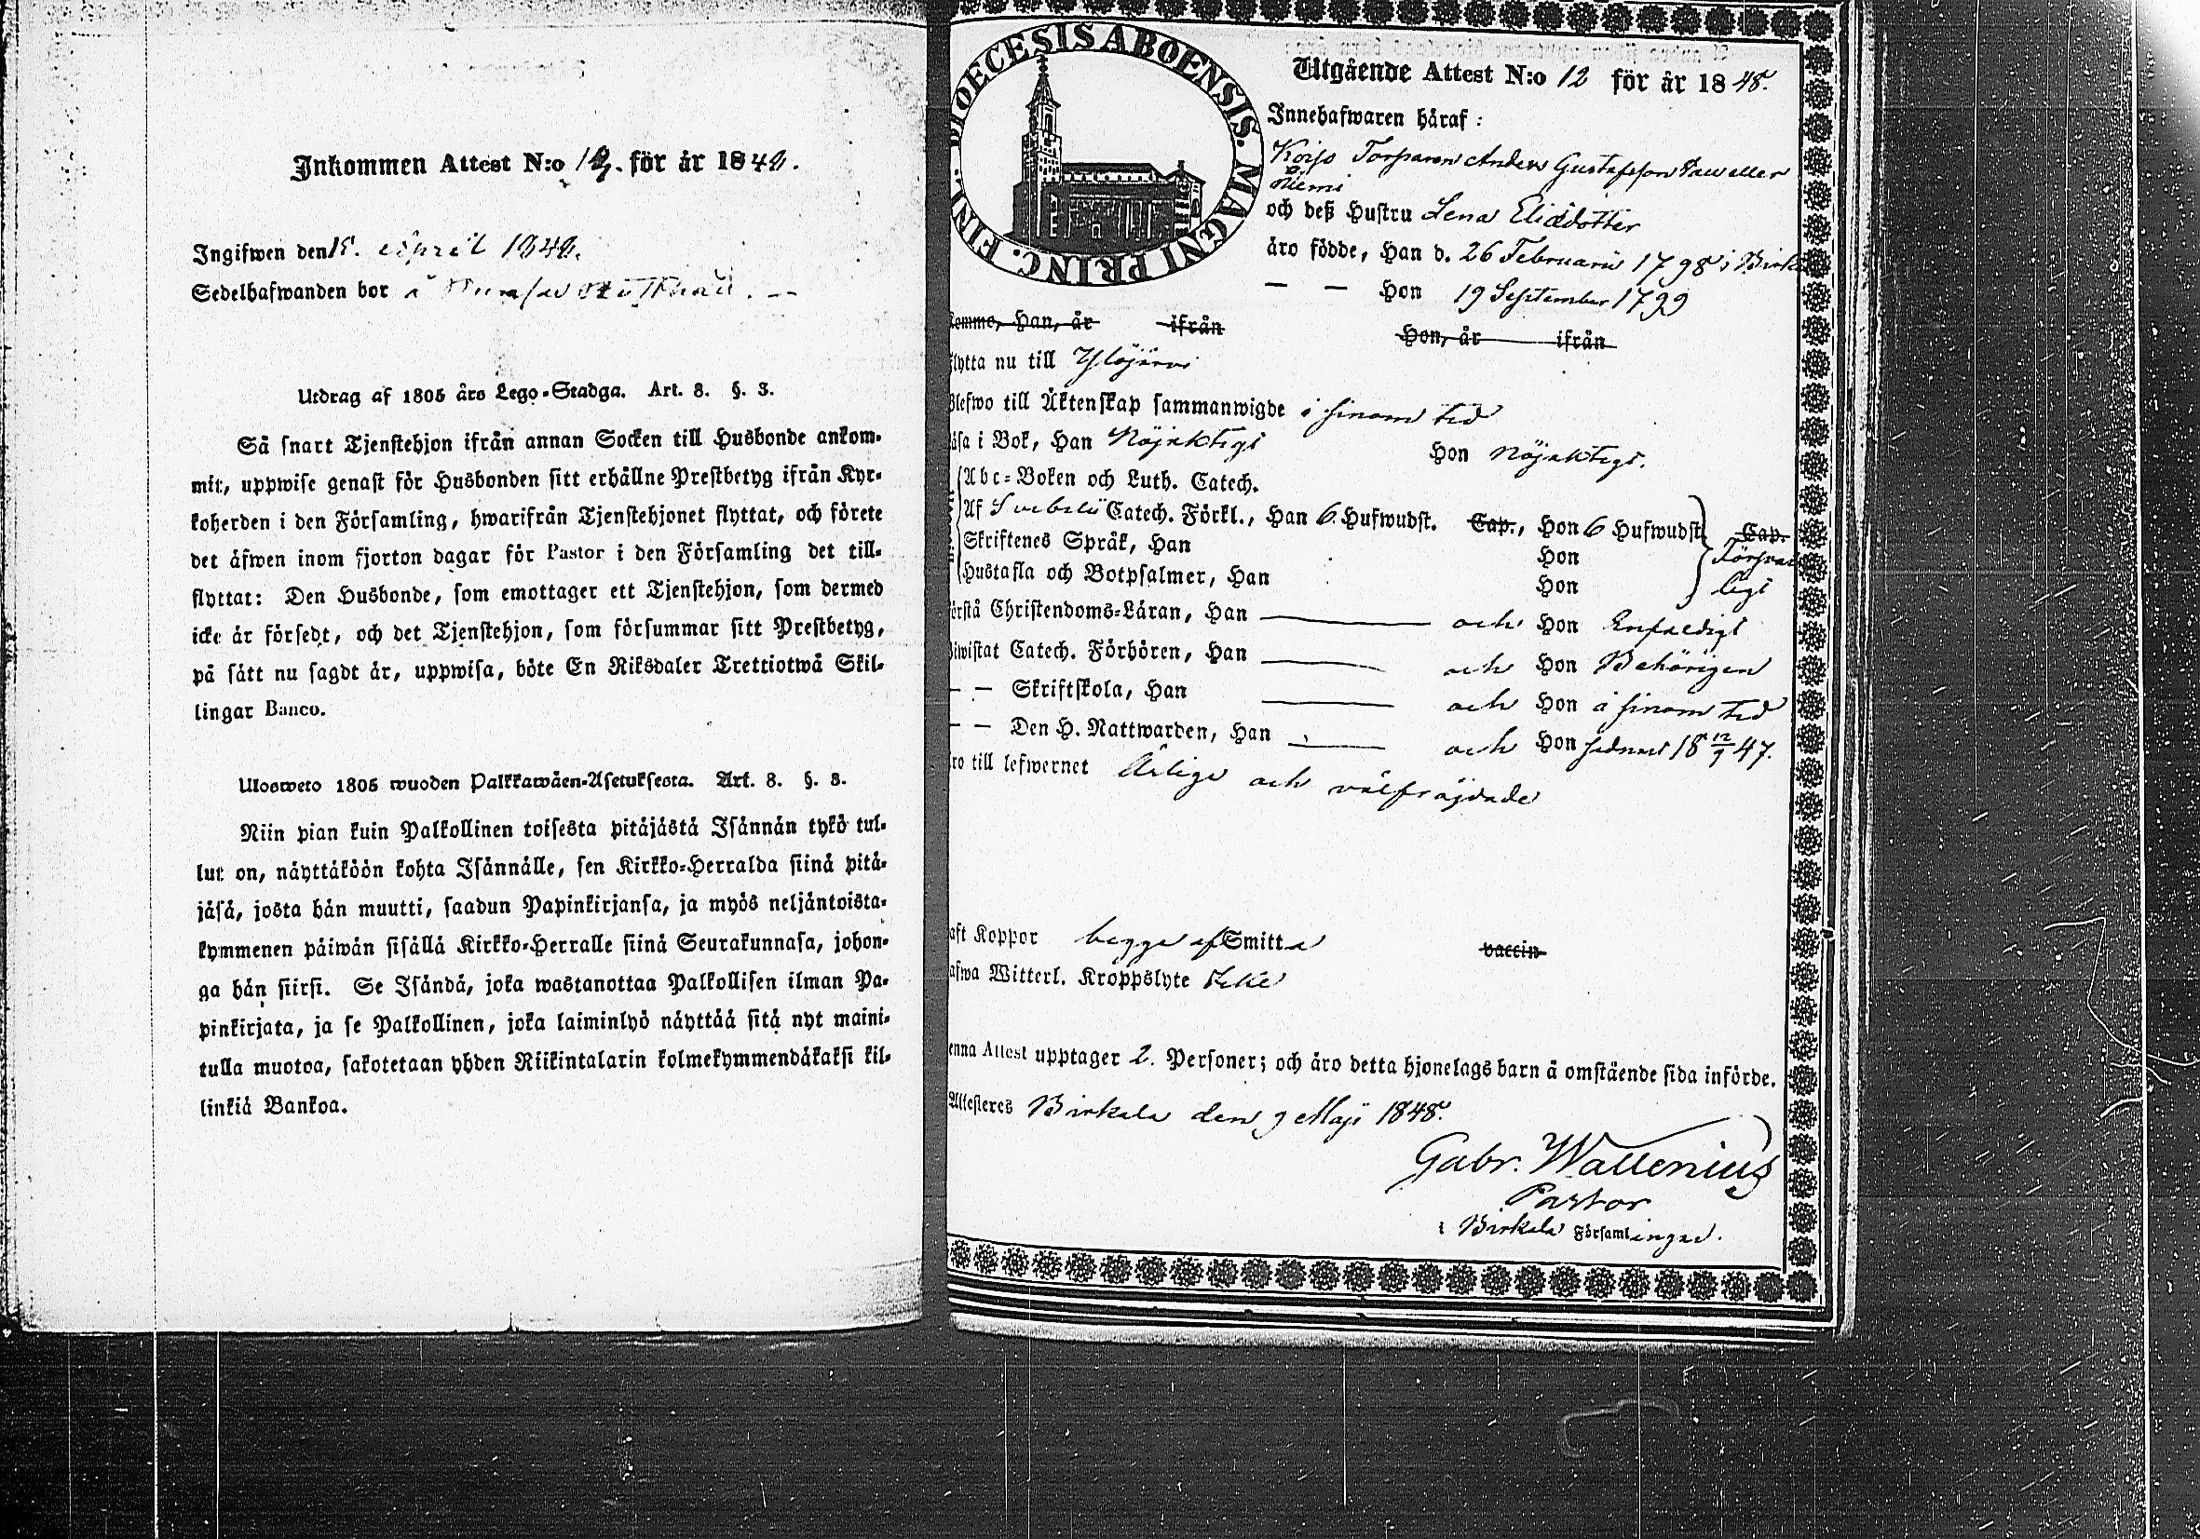 Inkommen Attest N:o för år 184
Ingifwen den April 184
Sedelhafwanden bor å
Utdrag af 1805 års Lego-Stadga. Art. 8. §. 3.
Så snart Tjenstehjon ifrån annan Socken till Husbonde ankom-
mit, uppwise genast för Husbonden sitt erhållne Prestbetyg ifrån Kyr-
koherden i den Församling, hwarifrån Tjenstehjonet flyttat, och förete
det äfwen inom fjorton dagar för Pastor i den Församling det till-
flyttat: Den Husbonde, som emottager ett Tjenstehjon, som dermed
icke är försedt, och det Tjenstehjon, som försummar sitt Prestbetyg,
på sätt nu sagdt är, uppwisa, böte En Riksdaler Trettiotwå Skil-
lingar Banco.
Ulosweto 1805 wuoden Palkkawäen-Asetuksesta. Art. 8. §. 3.
Niin pian kuin Palkollinen toisesta pitäjästä Isännän tykö tul-
lut on, näyttäköön kohta Isännälle, sen Kirkko-Herralda siinä pitä-
jäsä, josta hän muutti, saadun Papinkirjansa, ja myös neljäntoista-
kymmenen päiwän sisällä Kirkko-Herralle siinä Seurakunnasa, johon-
ga hän siirsi. Se Isändä, joka wastanottaa Palkollisen ilman Pa-
pinkirjata, ja se Palkollinen, joka laiminlyö näyttää sitä nyt maini-
tulla muotoa, sakotetaan yhden Riikintalarin kolmekymmendäkaksi kil-
linkiä Bankoa.
DIOECESIS ABOENSIS. MAGNI PRINC. FINL.
Utgående Attest N:o 12 för år 1848.
Innehafwaren häraf:
Torparen Anders Gustafsson eller
Niemi
och deß Hustru Lena Eliædotter
äro födde, Han d. 26 Februarii 1798 i Birk
— — Hon 19 September 1799
komne, Han, år ifrån Hon, år ifrån
flytta nu till Ylöjärvi
Blefwo till Äktenskap sammanwigde i sinom tid
läsa i Bok, Han Nöjaktigt Hon nöjaktigt.
Abc-Boken och Luth. Catech.
Af Svebelii Catech. Förkl., Han 6. Hufwudst. Cap., Hon 6 Hufwudst. Cap.
Skriftenes Språk, Han Hon Försvar
Hustafla och Botpsalmer, Han Hon ligt
förstå Christendoms-Läran, Han — och Hon Enfaldigt
Biwistat Catech. Förhören, Han — och Hon Behörigen
— — Skriftskola, Han — och Hon i sinom tid
— — Den H. Nattwarden, Han — och Hon sednast 18 12/9 47.
äro till lefwernet Ärlige och välfräjdade
haft Koppor begge af Smitta vaccin
hafwa Witterl. Kroppslyte Icke
enna Attest upptager 2. Personer; och äro detta hjonelags barn å omstående sida införde.
Attesteres Birkala den 9 Maji 1848.
Gabr. Wallenius
Pastor
i Birkala Församlingar.